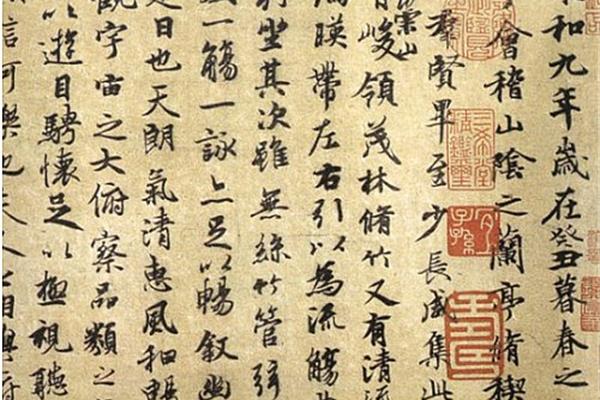 和九年歲在癸丑暮春之
會稽山陰之蘭亭脩禊
群賢畢至少長咸集此
崇山
有峻領茂林脩竹又有清流
湍暎帶左右引以為流觴
列坐其次雖無絲竹管弦
一觴一詠亦足以暢叙幽
是日也天朗氣清惠風和暢
觀宇宙之大俯察品類之
以遊目騁懷足以極視聽
信可樂也夫人之相與俯
三希堂精鑑璽
宜子孫